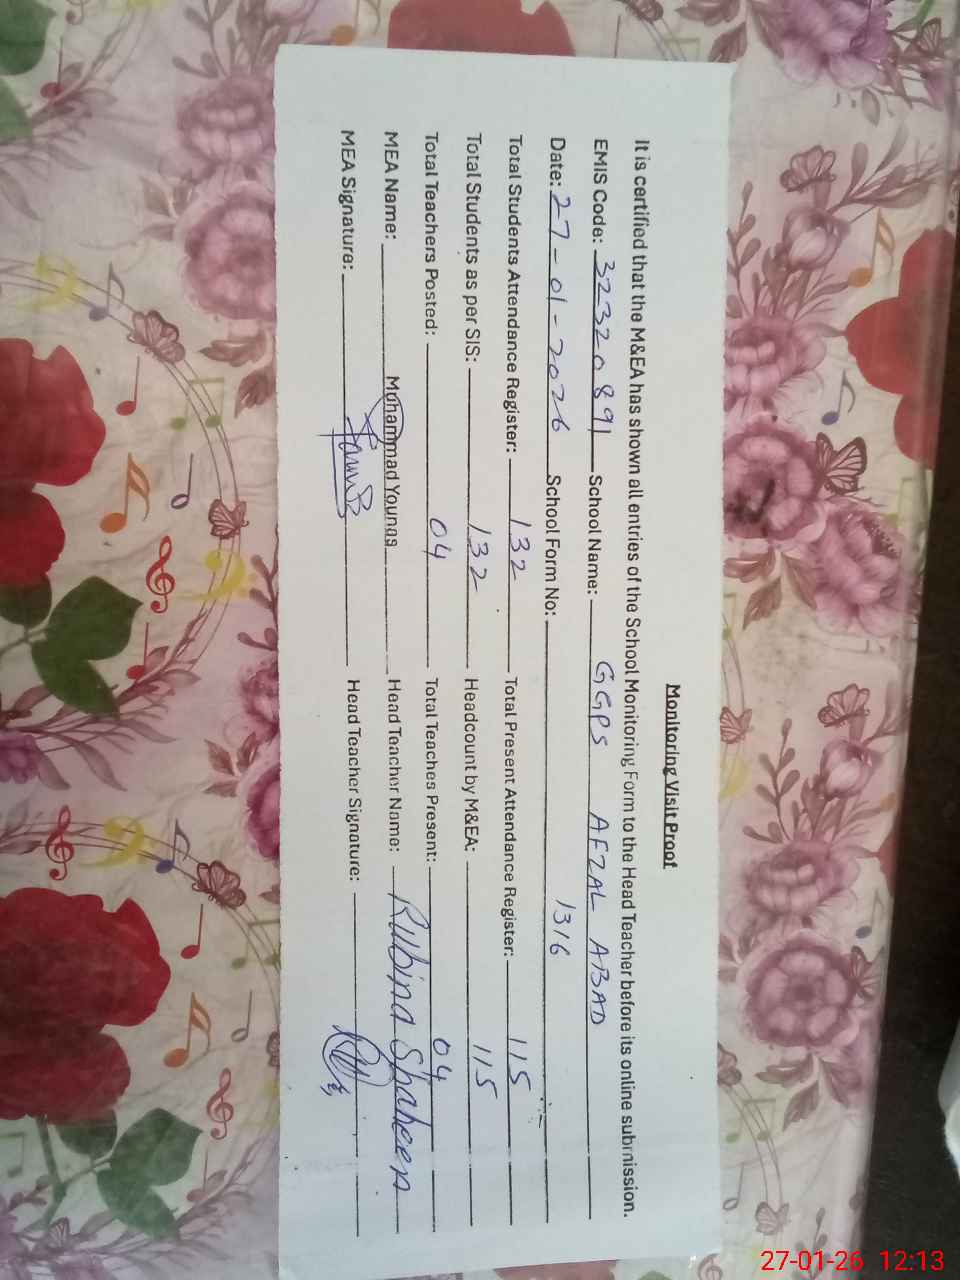 Monitoring Visit Proof
It is certified that the M&EA has shown all entries of the School Monitoring Form to the Head Teacher before its online submission.
EMIS Code: 32320891 School Name: GGPS AFZAL ABAD
Date: 27-01-2026 School Form No: 1316
Total Students Attendance Register: 132 Total Present Attendance Register: 115
Total Students as per SIS: 132 Headcount by M&EA: 115
Total Teachers Posted: 04 Total Teaches Present: 04
MEA Name: Muhammad Younas Head Teacher Name: Rubina Shaheen
MEA Signature: Head Teacher Signature:
27-01-26 12:13